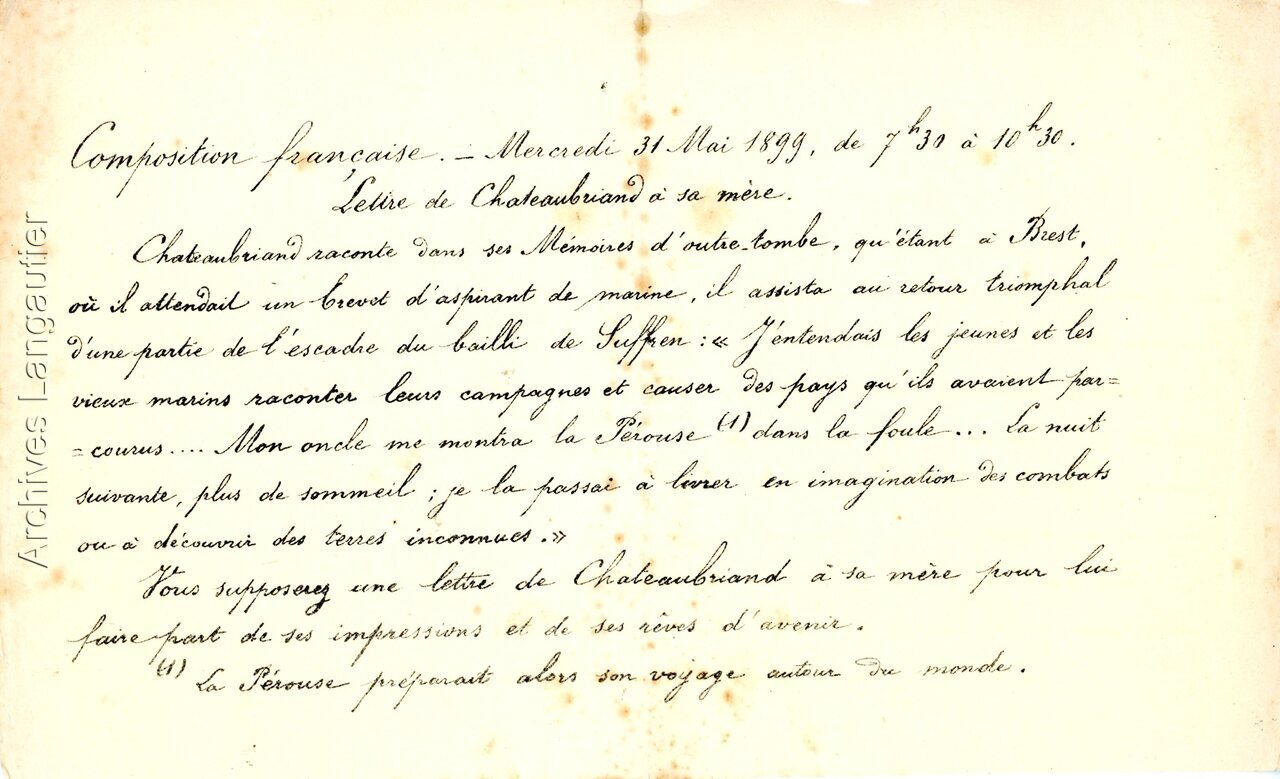 Composition française. — Mercredi 31 Mai 1899, de 7h30 à 10h30.
Lettre de Chateaubriand à sa mère.
Chateaubriand raconte dans ses Mémoires d'outre-tombe, qu'étant à Brest,
où il attendait un brevet d'aspirant de marine, il assista au retour triomphal
d'une partie de l'escadre du bailli de Suffren : « J'entendais les jeunes et les
vieux marins raconter leurs campagnes et causer des pays qu'ils avaient par=
=courus.... Mon oncle me montra la Pérouse (1) dans la foule... La nuit
suivante, plus de sommeil ; je la passai à livrer en imagination des combats
ou à découvrir des terres inconnues. »
Vous supposerez une lettre de Chateaubriand à sa mère pour lui
faire part de ses impressions et de ses rêves d'avenir.
(1) La Pérouse préparait alors son voyage autour du monde.
Archives Langautier